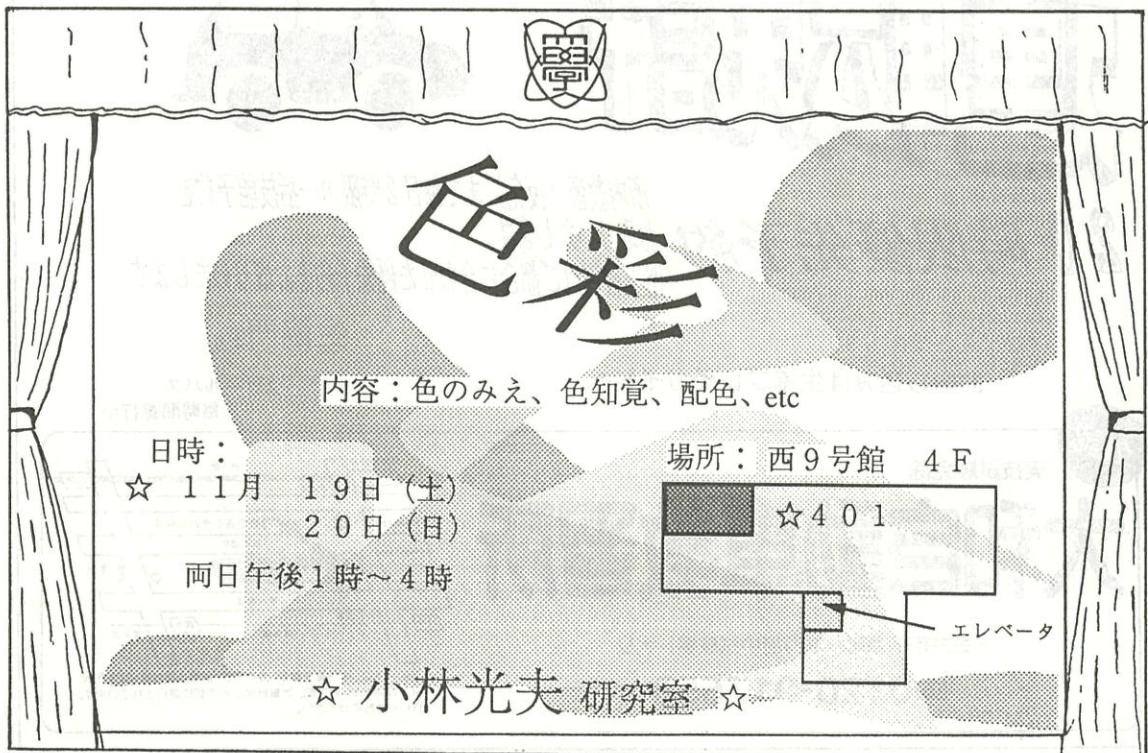 學
色彩
内容：色のみえ、色知覚、配色、etc
日時：
☆ 11月 19日（土）
20日（日）
両日午後1時～4時
場所： 西9号館 4F
☆401
エレベータ
☆ 小林光夫 研究室 ☆